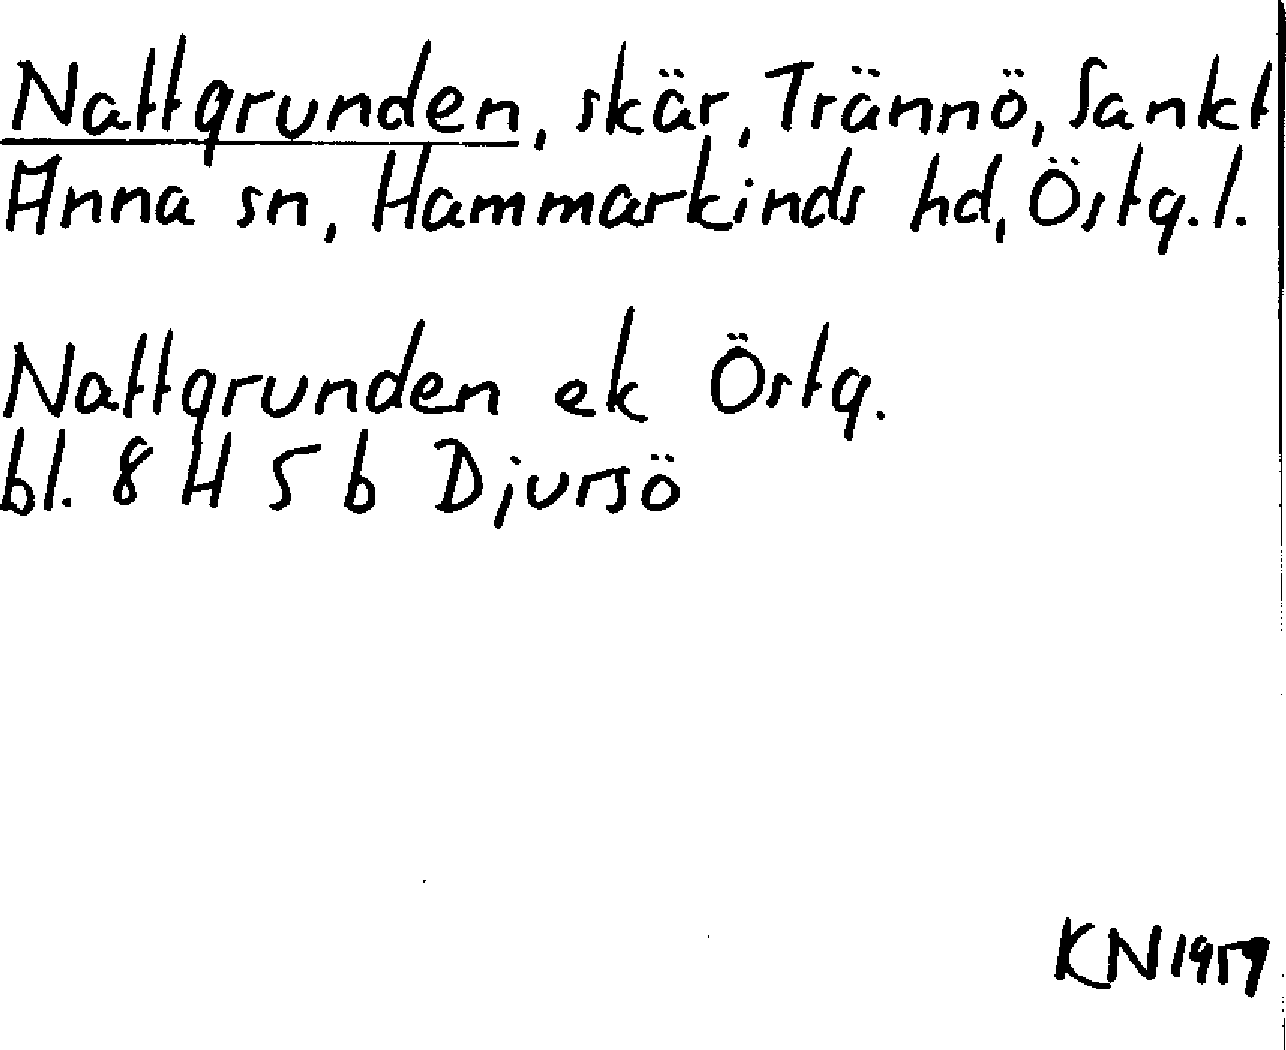 Nattgrunden, skär, Trännö, Sankt
Anna sn, Hammarkinds hd, Östg. l.
Nattgrunden ek Östg.
bl. 8 H 5 b Djursö
KN 1959